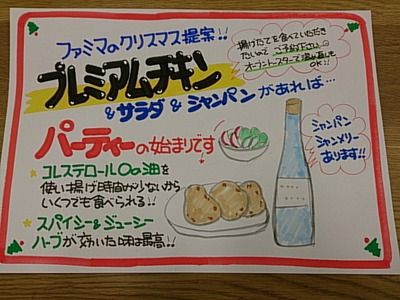 ファミマのクリスマス提案!!
プレミアムチキン
&サラダ&シャンパンがあれば…
揚げたてを食べていただき
たいので ご予約下さい。
オーブントースターで温め直しも
OK!!
パーティーの始まりです
★コレステロール0の油を
使い揚げ時間が少ないから
いくつでも食べられる!!
★スパイシー&ジューシー
ハーブが効いた味は最高!!
シャンパン
シャンメリー
あります!!